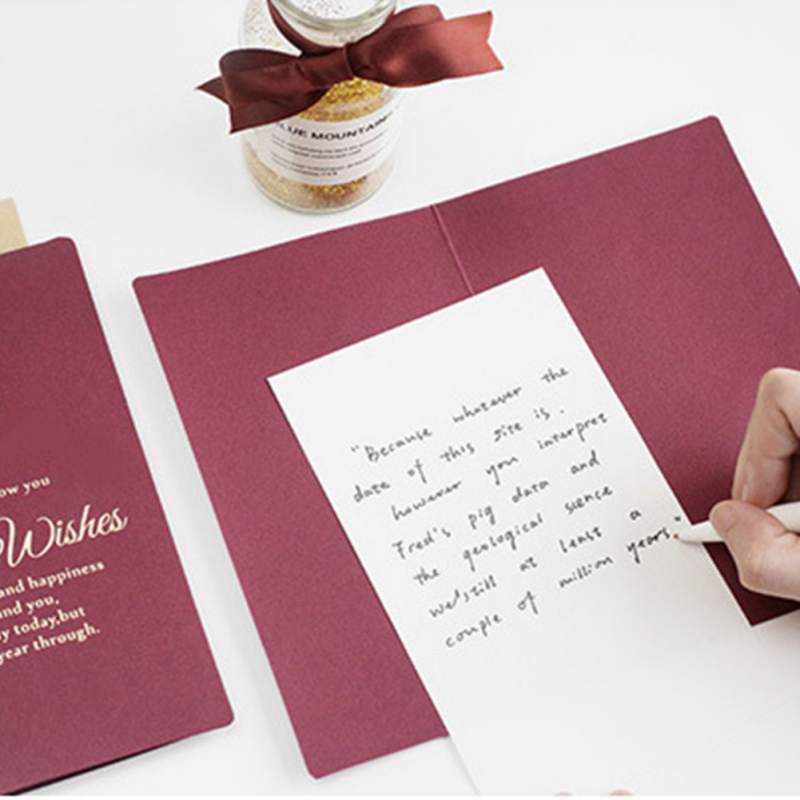 BLUE MOUNTAIN
ow you
Wishes
and happiness
nd you,
y today,but
year through.
"Because whatever the
date of this site is.
however you interpret
Fred's pig data and
the geological sience
we'still at least a
couple of million years."